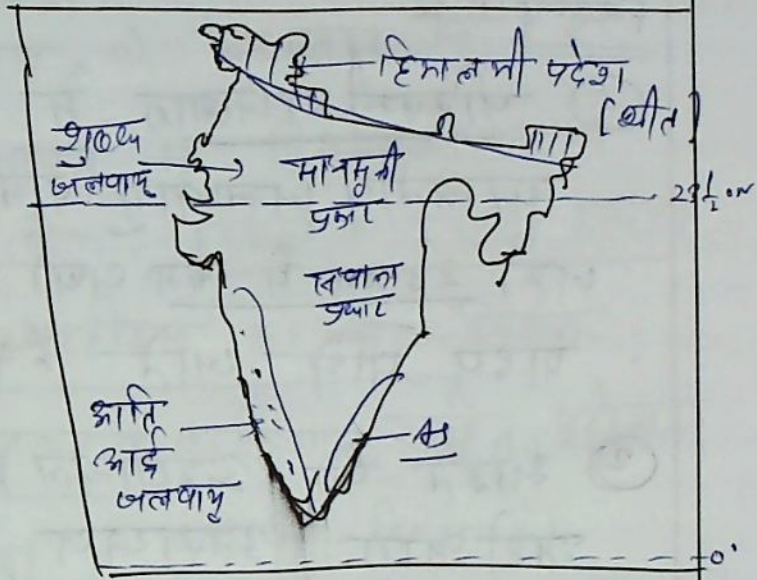 हिमालयी प्रदेश
[शीत]
शुष्क
जलवायु
मानसूनी
प्रकार
23½°N
सवाना
प्रकार
अति
आर्द्र
जलवायु
As
0°